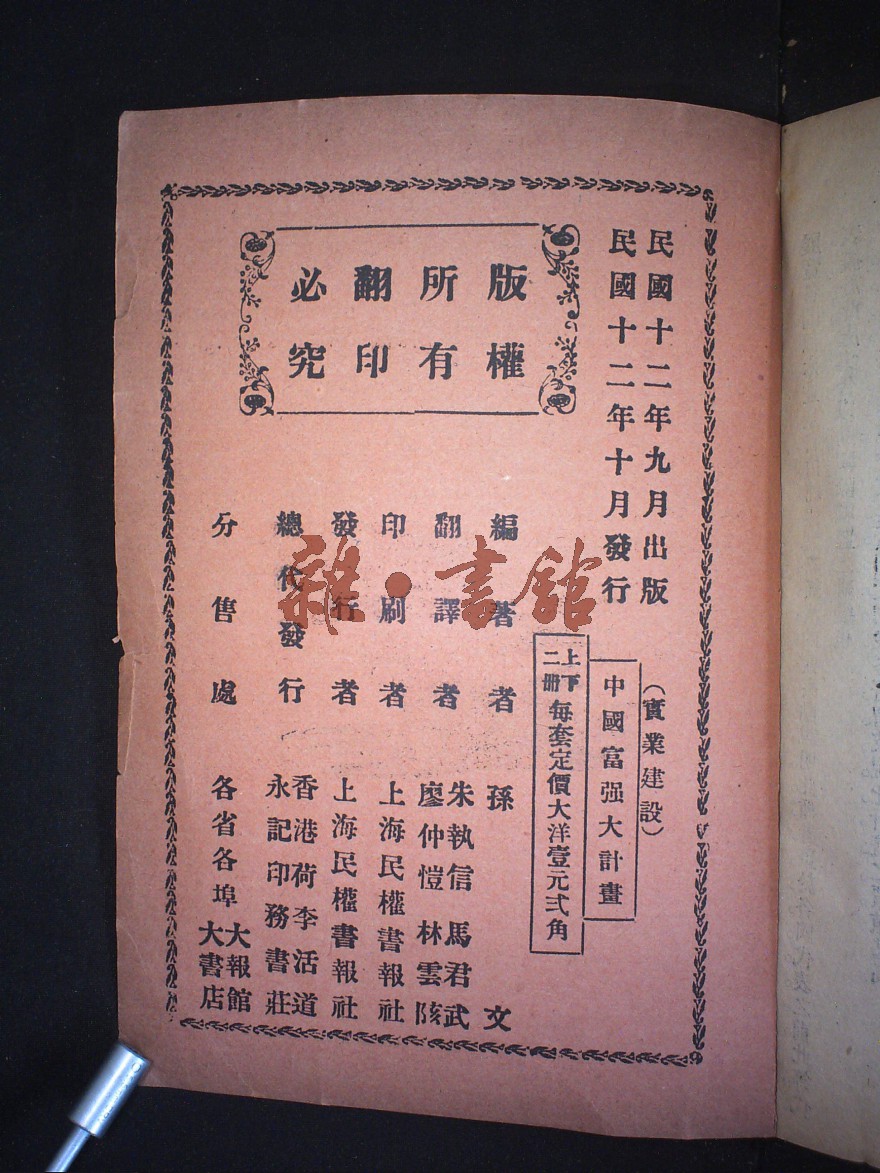 民國十二年九月出版
民國十二年十月發行
(實業建設)
中國富强大計畫
上下二冊 每套定價大洋壹元弍角
版權
所有
翻印
必究
編著者 孫文
翻譯者 朱執信 馬君武
廖仲愷 林雲陔
印刷者 上海民權書報社
發行者 上海民權書報社
總代發行 香港荷李活道
永記印務書莊
分售處 各省各埠 大報館
大書店
雜·書館